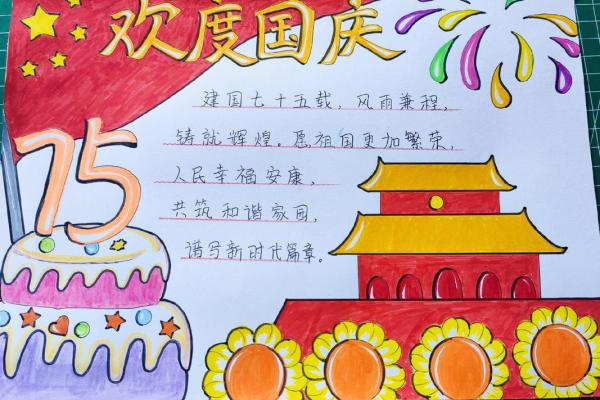 欢度国庆
75
建国七十五载，风雨兼程，
铸就辉煌。愿祖国更加繁荣，
人民幸福安康，
共筑和谐家园，
谱写新时代篇章。